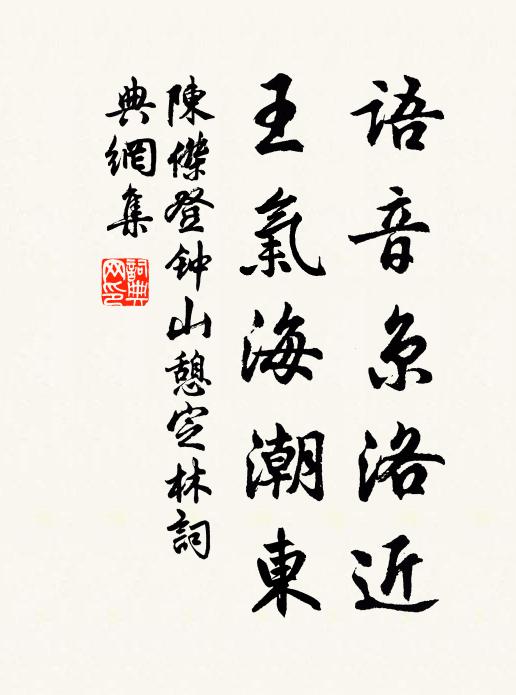 語音京洛近
王氣海潮東
陳傑登钟山憩定林詞
典網集
詞典
网印